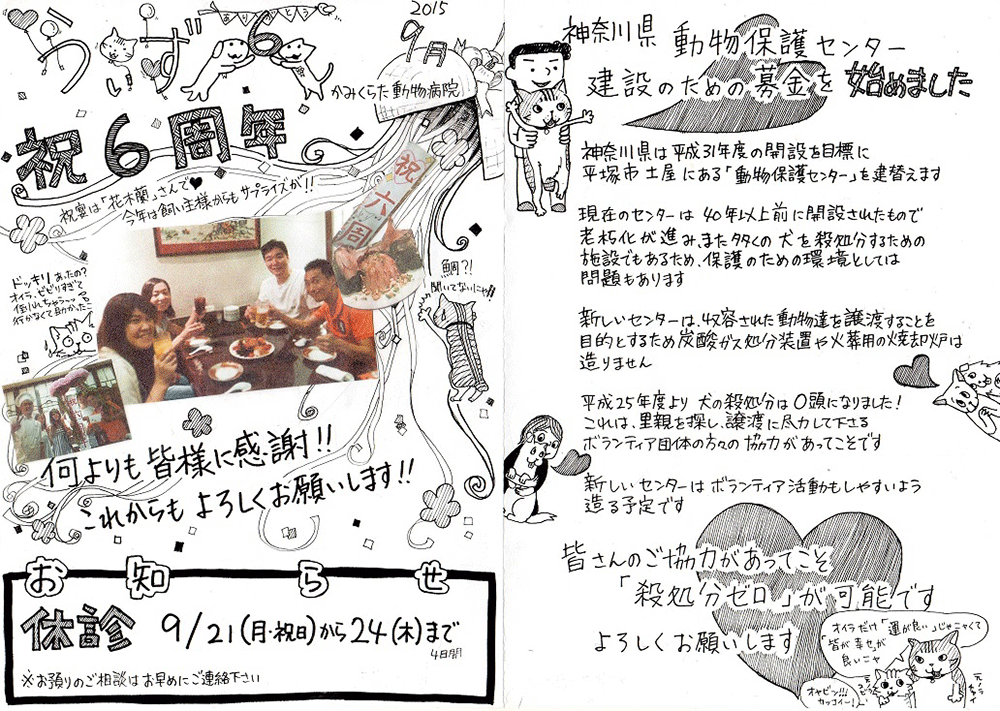 ありがとう
2015
9月
うぃず
6
かみくらた動物病院
祝6周年
祝宴は「花木蘭」さんで♥
今年は飼い主様からもサプライズが!!
祝六周
ドッキリあったの?
オイラ、ビビりすぎて
倒れちゃうっつーの
行かなくて助かったニャ
鯛?!
聞いてないニャ!!
何よりも皆様に感謝!!
これからもよろしくお願いします!!
お知らせ
休診 9/21(月・祝日)から24(木)まで
4日間
※お預りのご相談はお早めにご連絡下さい
神奈川県 動物保護センター
建設のための募金を始めました
神奈川県は平成31年度の開設を目標に
平塚市土屋にある「動物保護センター」を建替えます
現在のセンターは40年以上前に開設されたもので
老朽化が進み、また多くの犬を殺処分するための
施設でもあるため、保護のための環境としては
問題もあります
新しいセンターは、収容された動物達を譲渡することを
目的とするため炭酸ガス処分装置や火葬用の焼却炉は
造りません
平成25年度より犬の殺処分は0頭になりました!
これは、里親を探し、譲渡に尽力して下さる
ボランティア団体の方々の協力があってことです
新しいセンターはボランティア活動もしやすいよう
造る予定です
皆さんのご協力があってこそ
「殺処分ゼロ」が可能です
よろしくお願いします
オイラだけ「運が良い」じゃニャくて
「皆が幸せ」が
良いニャ
オヤビン!!!
カッコイー!